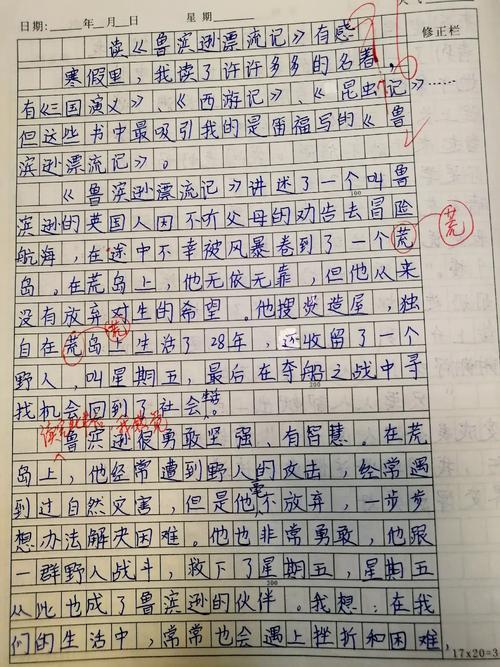 日期：____年__月__日 星期____
修正栏
读《鲁滨逊漂流记》有感
寒假里，我读了许许多多的名著，
有《三国演义》、《西游记》、《昆虫记》……
但这些书中最吸引我的是雷福写的《鲁
滨逊漂流记》。
《鲁滨逊漂流记》讲述了一个叫鲁
100
滨逊的英国人因不听父母的劝告去冒险
航海，在途中不幸被风暴卷到了一个荒
荒
岛。在荒岛上，他无依无靠，但他从来
没有放弃对生的希望。他搜炎造屋，独
荒
自在荒岛上生活了28年，还收留了一个
野人，叫星期五，最后在夺船之战中寻
200
找机会回到了社会。
鲁滨逊很勇敢坚强、有智慧。在荒
岛上，他经常遭到野人的攻击，经常遇
到过自然灾害，但是他毫不放弃，一步步
想办法解决困难。他也非常勇敢，他跟
一群野人战斗，救下了星期五，星期五
300
从此也成了鲁滨逊的伙伴。我想：在我
们的生活中，常常也会遇上挫折和困难，
17×20=3